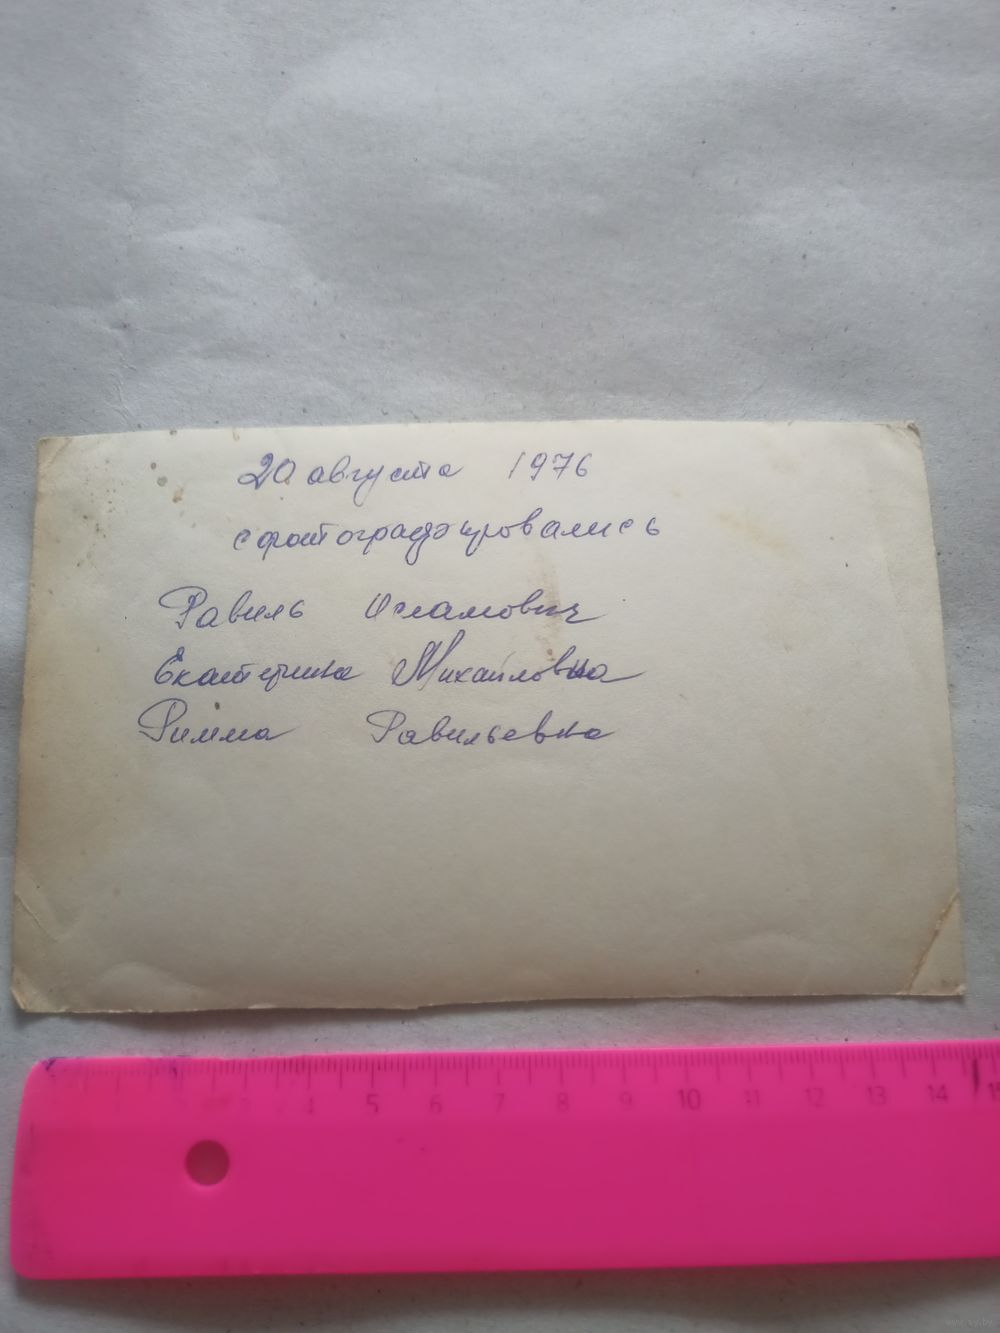 20 августа 1976
сфотографировались
Равиль Исламович
Екатерина Михайловна
Римма Равильевна
3 4 5 6 7 8 9 10 11 12 13 14 15